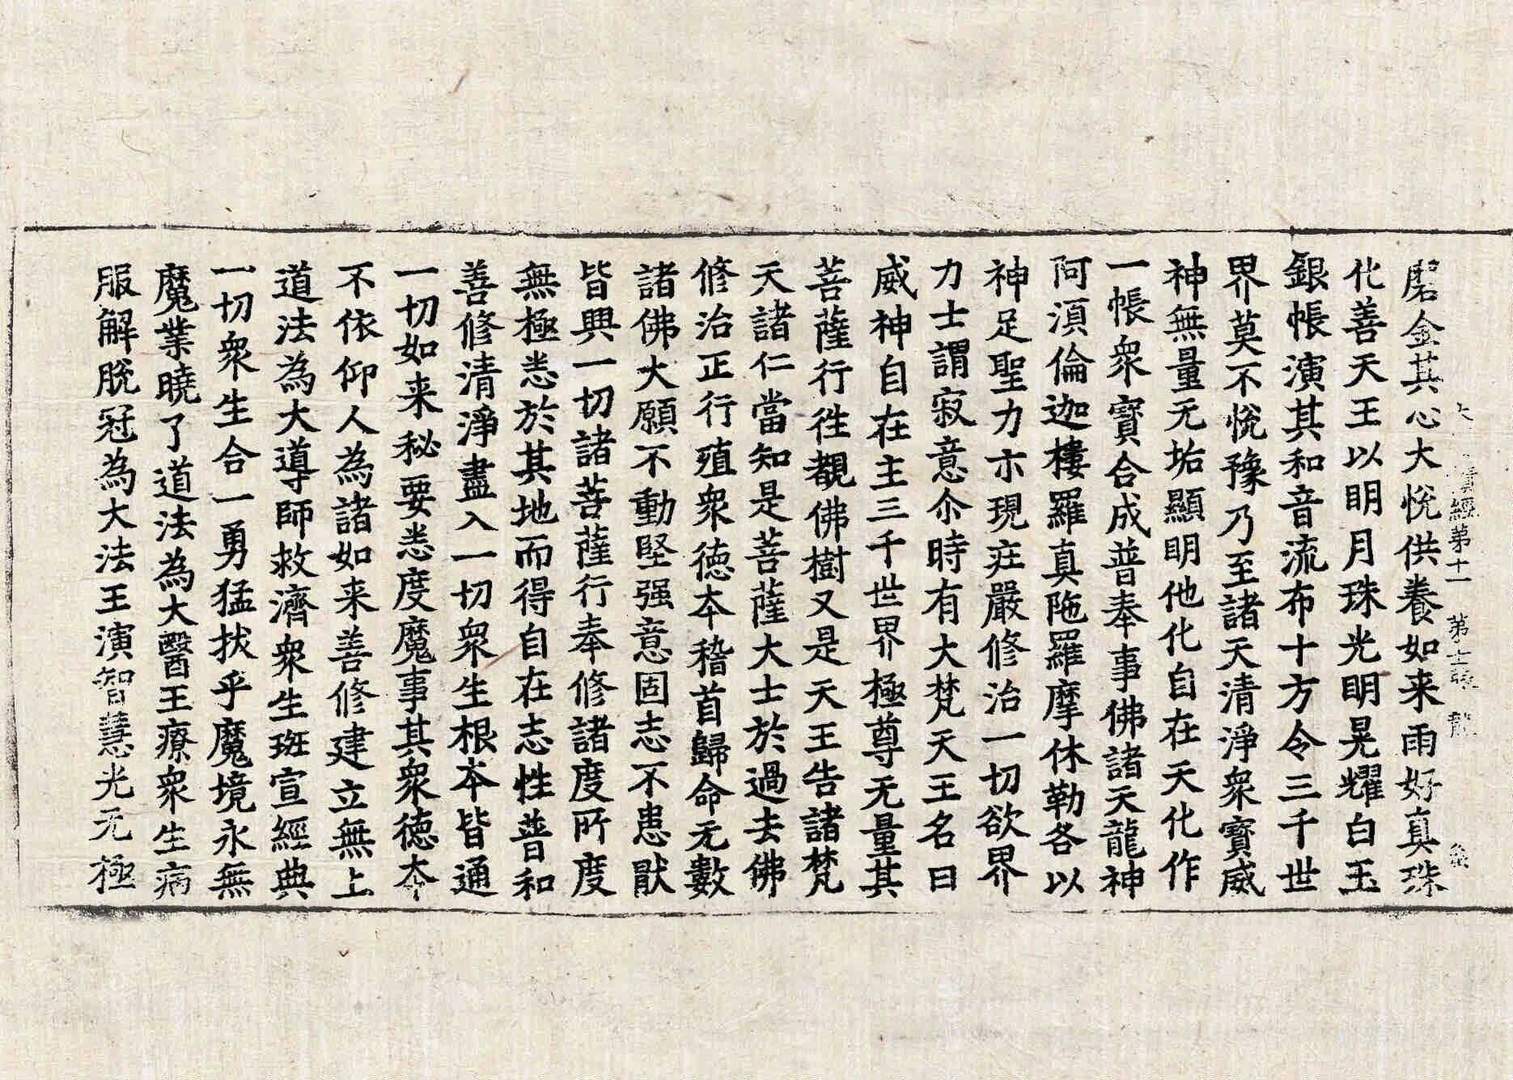 經第十一 第
磨金其心大悅供養如来雨好真珠
化善天王以明月珠光明晃耀白玉
銀帳演其和音流布十方令三千世
界莫不悅豫乃至諸天清淨衆寶威
神無量无垢顯明他化自在天化作
一帳衆寶合成普奉事佛諸天龍神
阿湏倫迦樓羅真陁羅摩休勒各以
神足聖力亦現莊嚴修治一切欲界
力士謂寂意尒時有大梵天王名曰
威神自在主三千世界極尊无量其
菩薩行往覩佛樹又是天王告諸梵
天諸仁當知是菩薩大士於過去佛
修治正行殖衆德本稽首歸命无數
諸佛大願不動堅强意固志不患猒
皆興一切諸菩薩行奉修諸度所度
無極恙於其地而得自在志性普和
善修清淨盡入一切衆生根本皆通
一切如来秘要恙度魔事其衆德本
不依仰人為諸如来善修建立無上
道法為大導師救濟衆生班宣經典
一切衆生合一勇猛扷乎魔境永無
魔業曉了道法為大醫王療衆生病
服解脫冠為大法王演智慧光无極